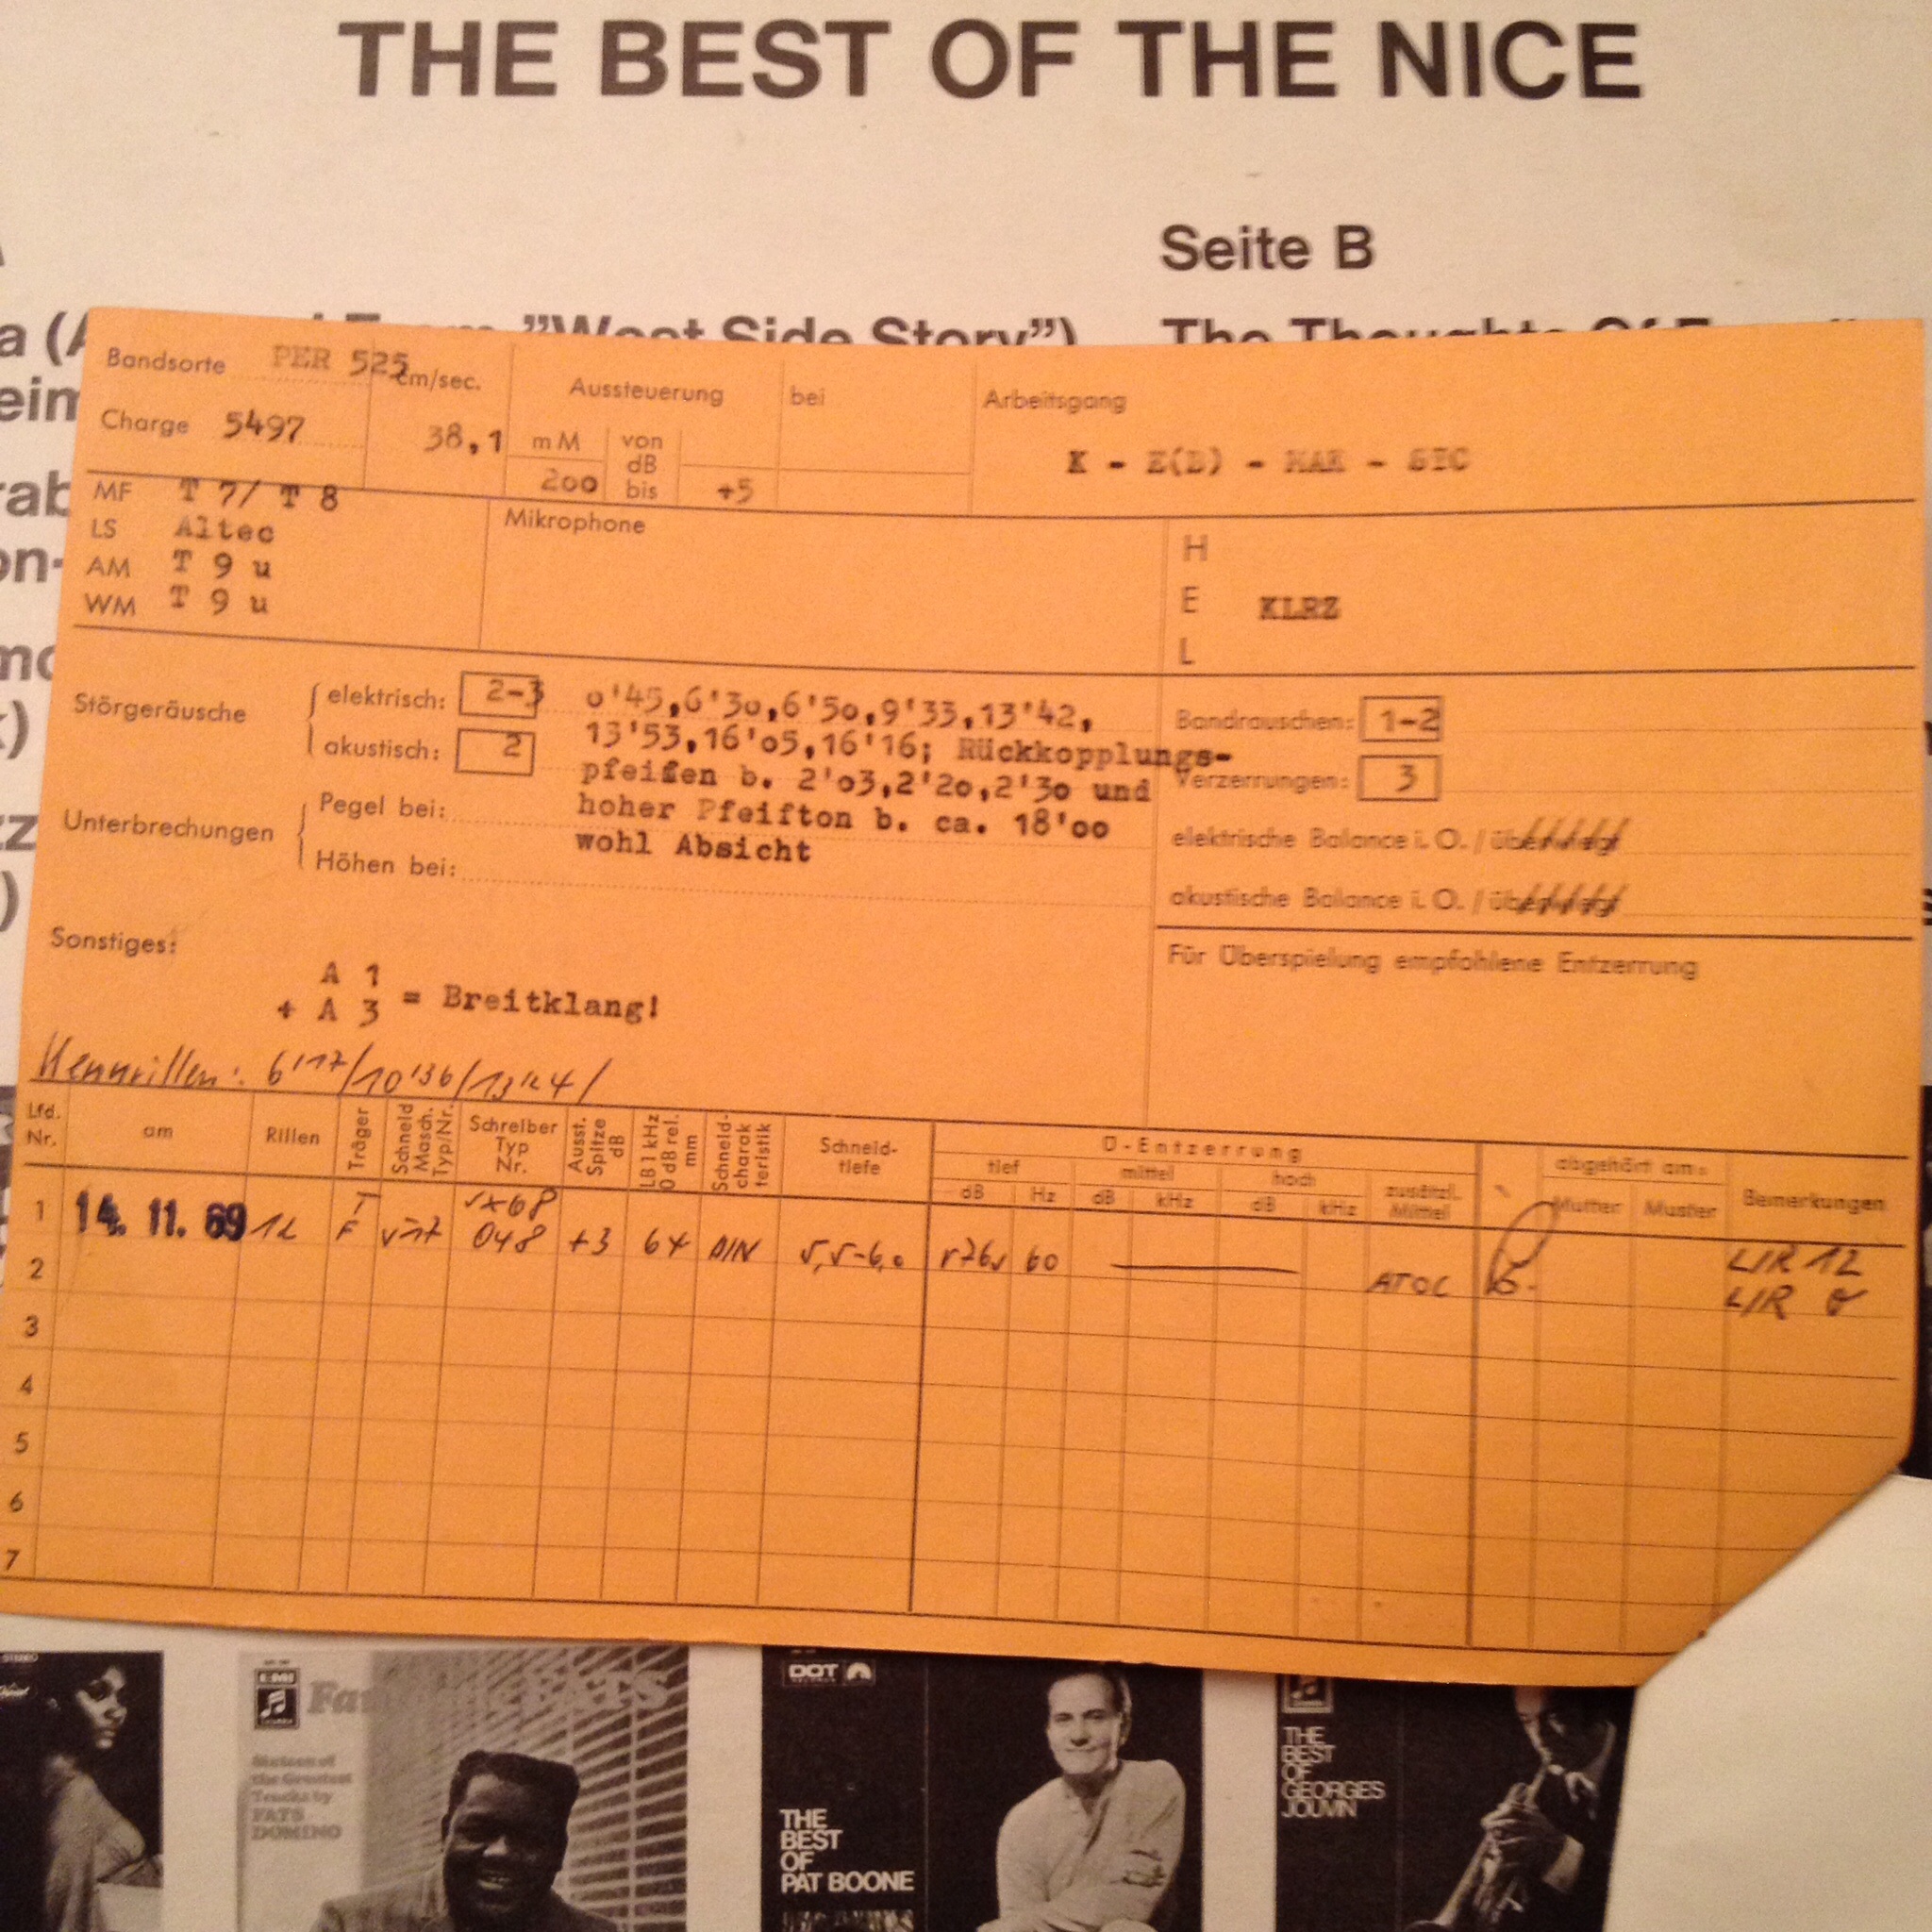 THE BEST OF THE NICE
Seite B
"West Side Story")
Bandsorte PER 525
cm/sec.
Charge 5497
38,1
Aussteuerung
bei
mM
von
dB
bis
200
+5
Arbeitsgang
K - E(B) - MAR - STC
MF T 7/ T 8
LS Altec
AM T 9 u
WM T 9 u
Mikrophone
H
E KLRZ
L
Störgeräusche
elektrisch: 2-3
akustisch: 2
0'45,6'30,6'50,9'33,13'42,
13'53,16'05,16'16; Rückkopplungs-
pfeifen b. 2'03,2'20,2'30 und
hoher Pfeifton b. ca. 18'00
wohl Absicht
Unterbrechungen
Pegel bei:
Höhen bei:
Bandrauschen: 1-2
Verzerrungen: 3
elektrische Balance i. O. / überwiegt
akustische Balance i. O. / überwiegt
Für Überspielung empfohlene Entzerrung
Sonstiges:
A 1
+ A 3 = Breitklang!
Kennrillen: 6'17/10'36/13'24/
Lfd. Nr.
am
Rillen
Träger
Schneid Masch. Typ/Nr.
Schreiber Typ Nr.
Ausst. Spitze dB
LB 1 kHz 0 dB rel. mm
Schneid-charak teristik
Schneid-tiefe
Ü-Entzerrung
tief
mittel
hoch
dB Hz dB kHz dB kHz
zusätzl. Mittel
abgehört am:
Mutter
Muster
Bemerkungen
1 14. 11. 69 12 F SX68 048 +3 64 DIN 5,5-6,0 60 ATOC LIR 12
2 LIR
3
4
5
6
7
STEREO
EMI
Columbia
FATS
Sixteen of
the Greatest
Tracks by
FATS
DOMINO
DOT
RECORDS
THE
BEST
OF
PAT BOONE
THE
BEST
OF
GEORGES
JOUVIN